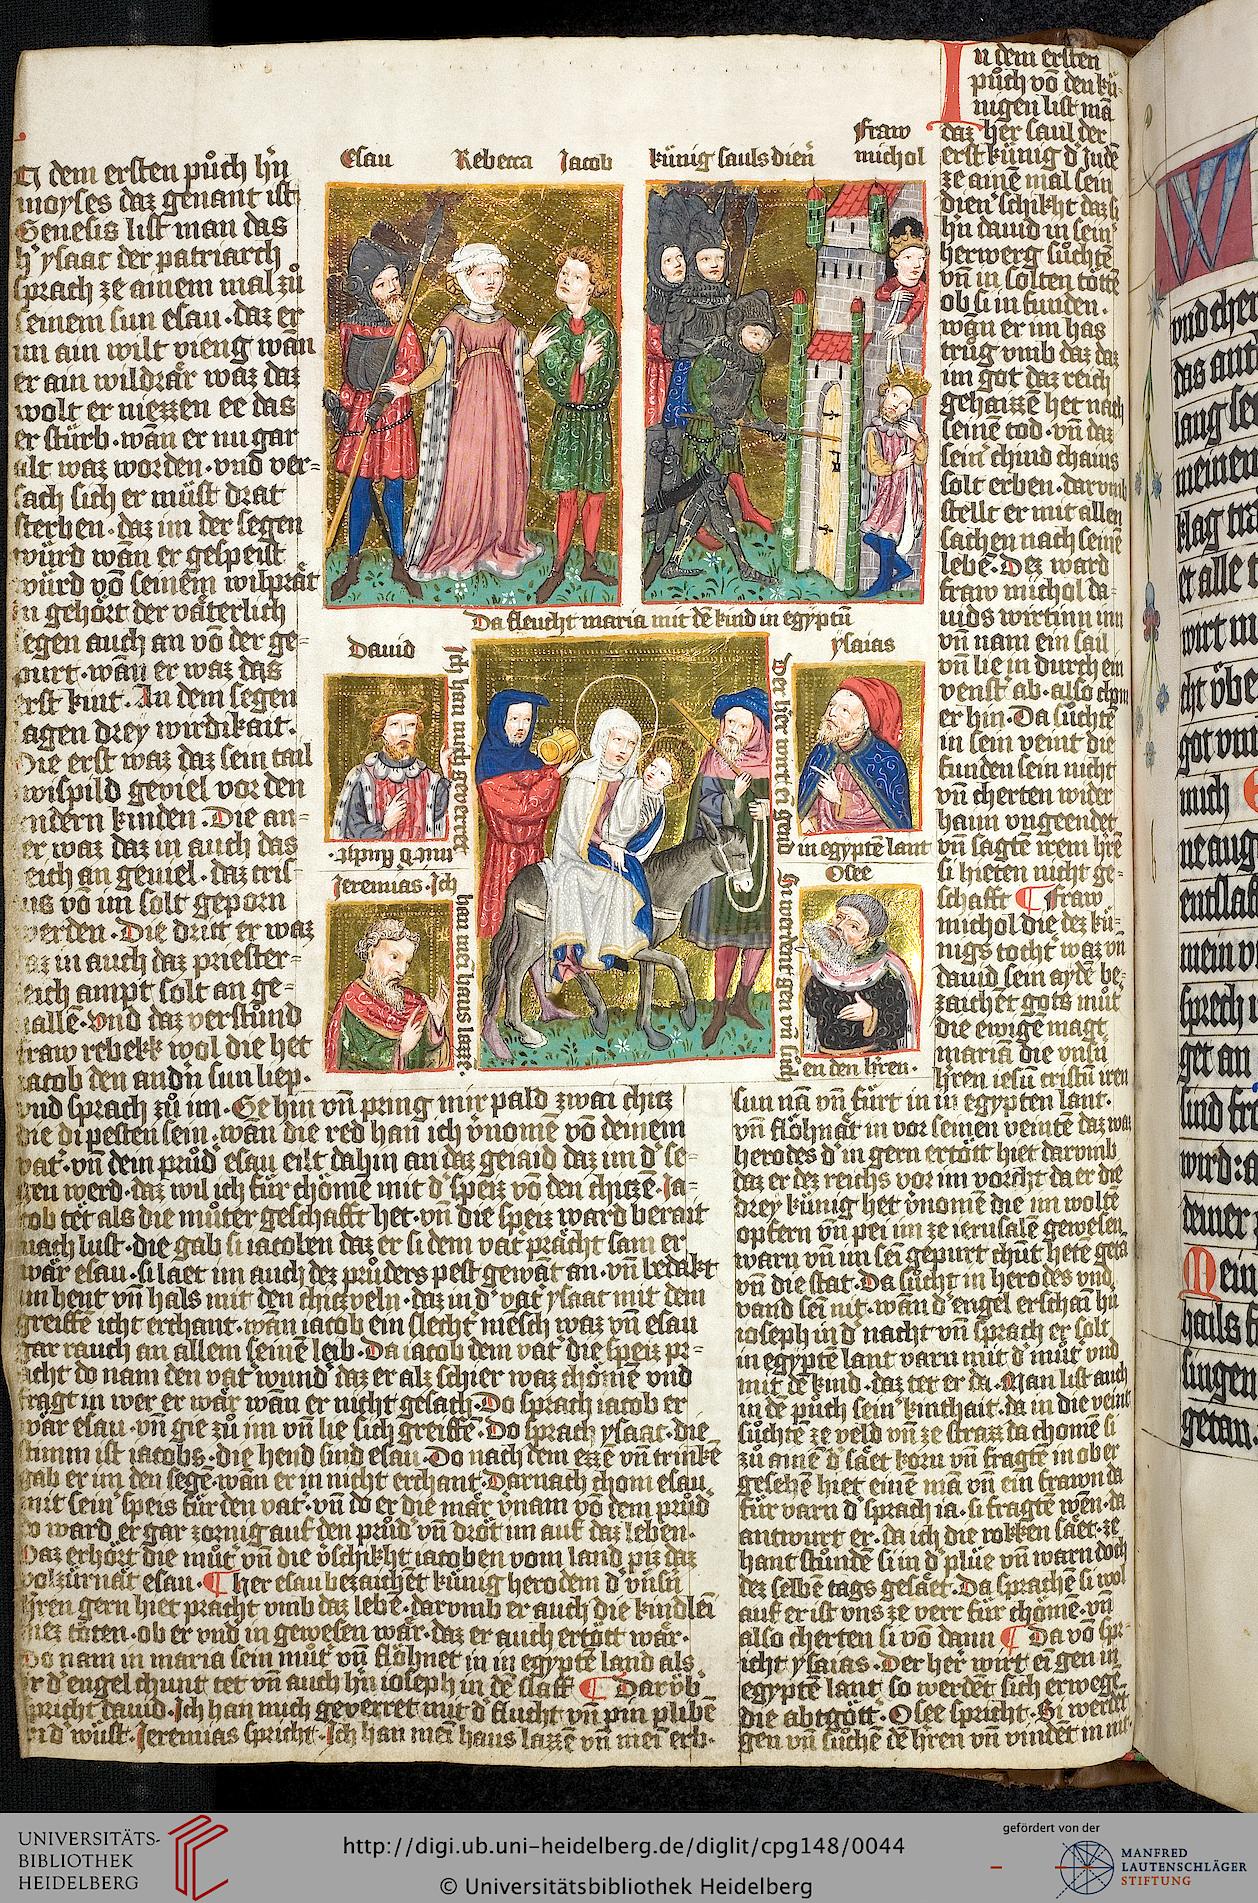 Esau Rebecca Jacob
künig sauls dien̄
Fraw
michol
In dem ersten půch hn̄
moyses daz genant ist
Genesis list man das
h' ysaac der patriarch
sprach ze ainem mal zů
seinem sun esau · daz er
im ain wilt vieng wān
er ain wildrär waz daz
wolt er niezzen ee das
er stürb · wān er nu gar
alt waz worden · vnd ver-
sach sich er müst drat
sterben · daz im der segen
würd wān er gespeist
würd vō seinem wilprät
in gehört der väterlich
segen auch an vō der ge-
purt · wān er waz das
erst kint · In dem segen
lagen drey wirdikait ·
Die erst waz daz sein tail
wispild geviel vor den
andern kinden · Die an-
der waz daz in auch das
reich an geviel · daz cris-
tus vō im solt geporn
werden · Die dritt er waz
daz in auch daz priester-
leich ampt solt an ge-
uallē · vnd daz verstůnd
fraw rebekk wol die het
iacob den andn̄ sun liep ·
vnd sprach zů im · Ge hin vn̄ pring mir pald zwai chicz
die di pesten sein · wān die red han ich v'nomē vō deinem
vat' · vn̄ dem průd' esau eilt dahin an daz geiaid daz im d' se-
gen werd · daz wil ich für chömē mit d' speiz vō den chiczē · Ja-
cob tet als die můter geschafft het · vn̄ die speiz ward berait
nach lust · die gab si iacoben daz er si dem vat' prächt sam er
wär esau · si läet im auch dez průders pest gewāt an · vn̄ bedakt
im hent vn̄ hals mit den chiczveln · daz in d' vat' ysaac mit dem
greiffē icht erchant · wān iacob ein slecht mēsch waz vn̄ esau
gar rauch an allem seinē leib · Da iacob dem vat' die speiz pr-
acht do nam den vat' wund' daz er alz schier waz chömē vnd
fragt in wer er wär wān er nicht gesach · Do sprach iacob er
wär esau · vn̄ gie zů im vn̄ lie sich greiffē · Do sprach ysaac · die
stimm ist iacobs · die hend sind esau · Do nach dem ezzē vn̄ trinkē
gab er im den segē · wān er in nicht erchant · Darnach chom esau
mit sein' speis für den vat' · vn̄ do er die mär v'nam vō dem průd'
do ward er gar zornig auf den průd' vn̄ dröt im auf daz leben ·
Daz erhört die můt' vn̄ die v'schikht iacoben vom land piz daz
volzürnät esau · ¶ Her esau bezaichēt künig herodem d' vnsn̄
hren gern hiet pracht vmb daz lebē · darvmb er auch die kindlei
hiez töten · ob er vnd in gewesen wär · daz er auch ertött wär ·
Do nam in maria sein můt' vn̄ flöhnet in in egyptē land als
ir d' engel chunt tet vn̄ auch hn̄ ioseph in dē slaff ¶ Darvb
spricht dauid · Ich han mich geverret mit d' flucht vn̄ pin plibē
in d' wüst · Jeremias spricht · Ich han mei haus lazzē vn̄ mei erb ·
Da fleucht maria mit dē kind in egyptn̄
Dauid
Ich han mich geverret
mit d' flucht ·
Jeremias · Ich
han mei haus lazzē ·
ysaias
Der herr wirt ei gend
in egyptē lant
Osee
Si werdent gen vn̄ sůch
en den hren ·
In dem ersten
půch vō den kü-
nigen list mā
daz her saul der
erst künig d' judē
ze ainē mal sein
dien' schikht daz si
hn̄ dauid in sein'
herwerg sůchtē
vn̄ in solten töttē
ob si in funden ·
wān er im has
trůg vmb daz daz
im got daz reich
gehaizzē het nach
seinē tod · vn̄ daz
sein chind chains
solt erben · darvmb
stellt er mit allen
sachen nach seinē
lebē · Dez ward
fraw michol da-
uids wirtinn inn
vn̄ nam ein sail
vn̄ lie in durch ein
venst' ab · also chom
er hin · Da sůchtē
in sein veint die
funden sein nicht
vn̄ cherten wider
haim vngeendet
vn̄ sagtē irem hrē
si hieten nicht ge-
schafft ¶ Fraw
michol die dez kü-
nigs tocht' waz vn̄
dauid sein aydē be-
zaichēt gots můt'
die ewigē magt
mariā die vnsn̄
hren iesū cristū iren
sun nā vn̄ fürt in in egypten lant ·
vn̄ flöhnät in vor seinen veintē daz waz
herodes d' in gern ertött hiet darvmb
daz er dez reichs vor im vorcht da er die
drey künig het v'nomē die im woltē
opfern vn̄ pei im ze ierusalē gewesen
warn vn̄ im sei gepurt chūt hetē getā
vn̄ die stat · Da sůcht in herodes vnd
vand sei nit · wān d' engel erschai hn̄
ioseph in d' nacht vn̄ sprach er solt
in egyptē lant varn mit d' můt' vnd
mit dē kind · daz tet er da · Man list auch
in dē půch sein' kinchait · da in die veint
sůchtē ze veld vn̄ ze strazz da chomē si
zů ainē d' säet korn vn̄ fragtē in ob er
gesehē hiet einē mā vn̄ ein frawn da
für varn d' sprach ia · si fragtē wen · da
antwurt er · da ich die rokken säet · ze
hant stůndē si in d' plüe vn̄ warn doch
dez selbē tags gesäet · Da sprachē si wol
auf er ist vns ze verr für chömē · vn̄
also cherten si vō dann ¶ Da vō spr-
icht ysaias · Der her wirt ei gen in
egyptē lant so werdēt sich erwegē
die abtgött · Osee spricht · Si werdēt
gen vn̄ sůchē dē hren vn̄ vindēt in nit ·
W
vnd
das
mich
singen
getan ·
UNIVERSITÄTS-
BIBLIOTHEK
HEIDELBERG
http://digi.ub.uni-heidelberg.de/diglit/cpg148/0044
© Universitätsbibliothek Heidelberg
gefördert von der
MANFRED
LAUTENSCHLÄGER
STIFTUNG